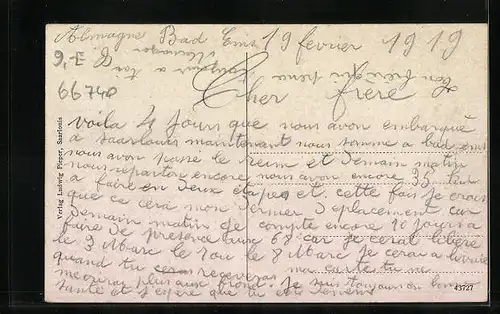 Almagne Bad Ems 19 fevrier 1919
Ton frère qui pense
toujour a toi
66740
Cher frere
Voila 4 Jours que nous avon embarqué
a Saarlouis maintenant nous somme a bad ems
nous avon passé le reum et Demain matin
nous repartons encore nous avon encore 95 kil
a faire en Deux étapes et cette fois Je crois
que ce cera mon Dernier Deplacement car
Demain matin de compte encore 10 Jours a
faire de presence aux 68 car Je cerai libéré
le 9 Marc le 7ou le 8 Marc Je cerai a
quand tu receveras ma carte tu ne
plus aux Je suis toujours en bonne
santé et J'espere que tu est
Verlag Ludwig Pieper, Saarlouis
43727